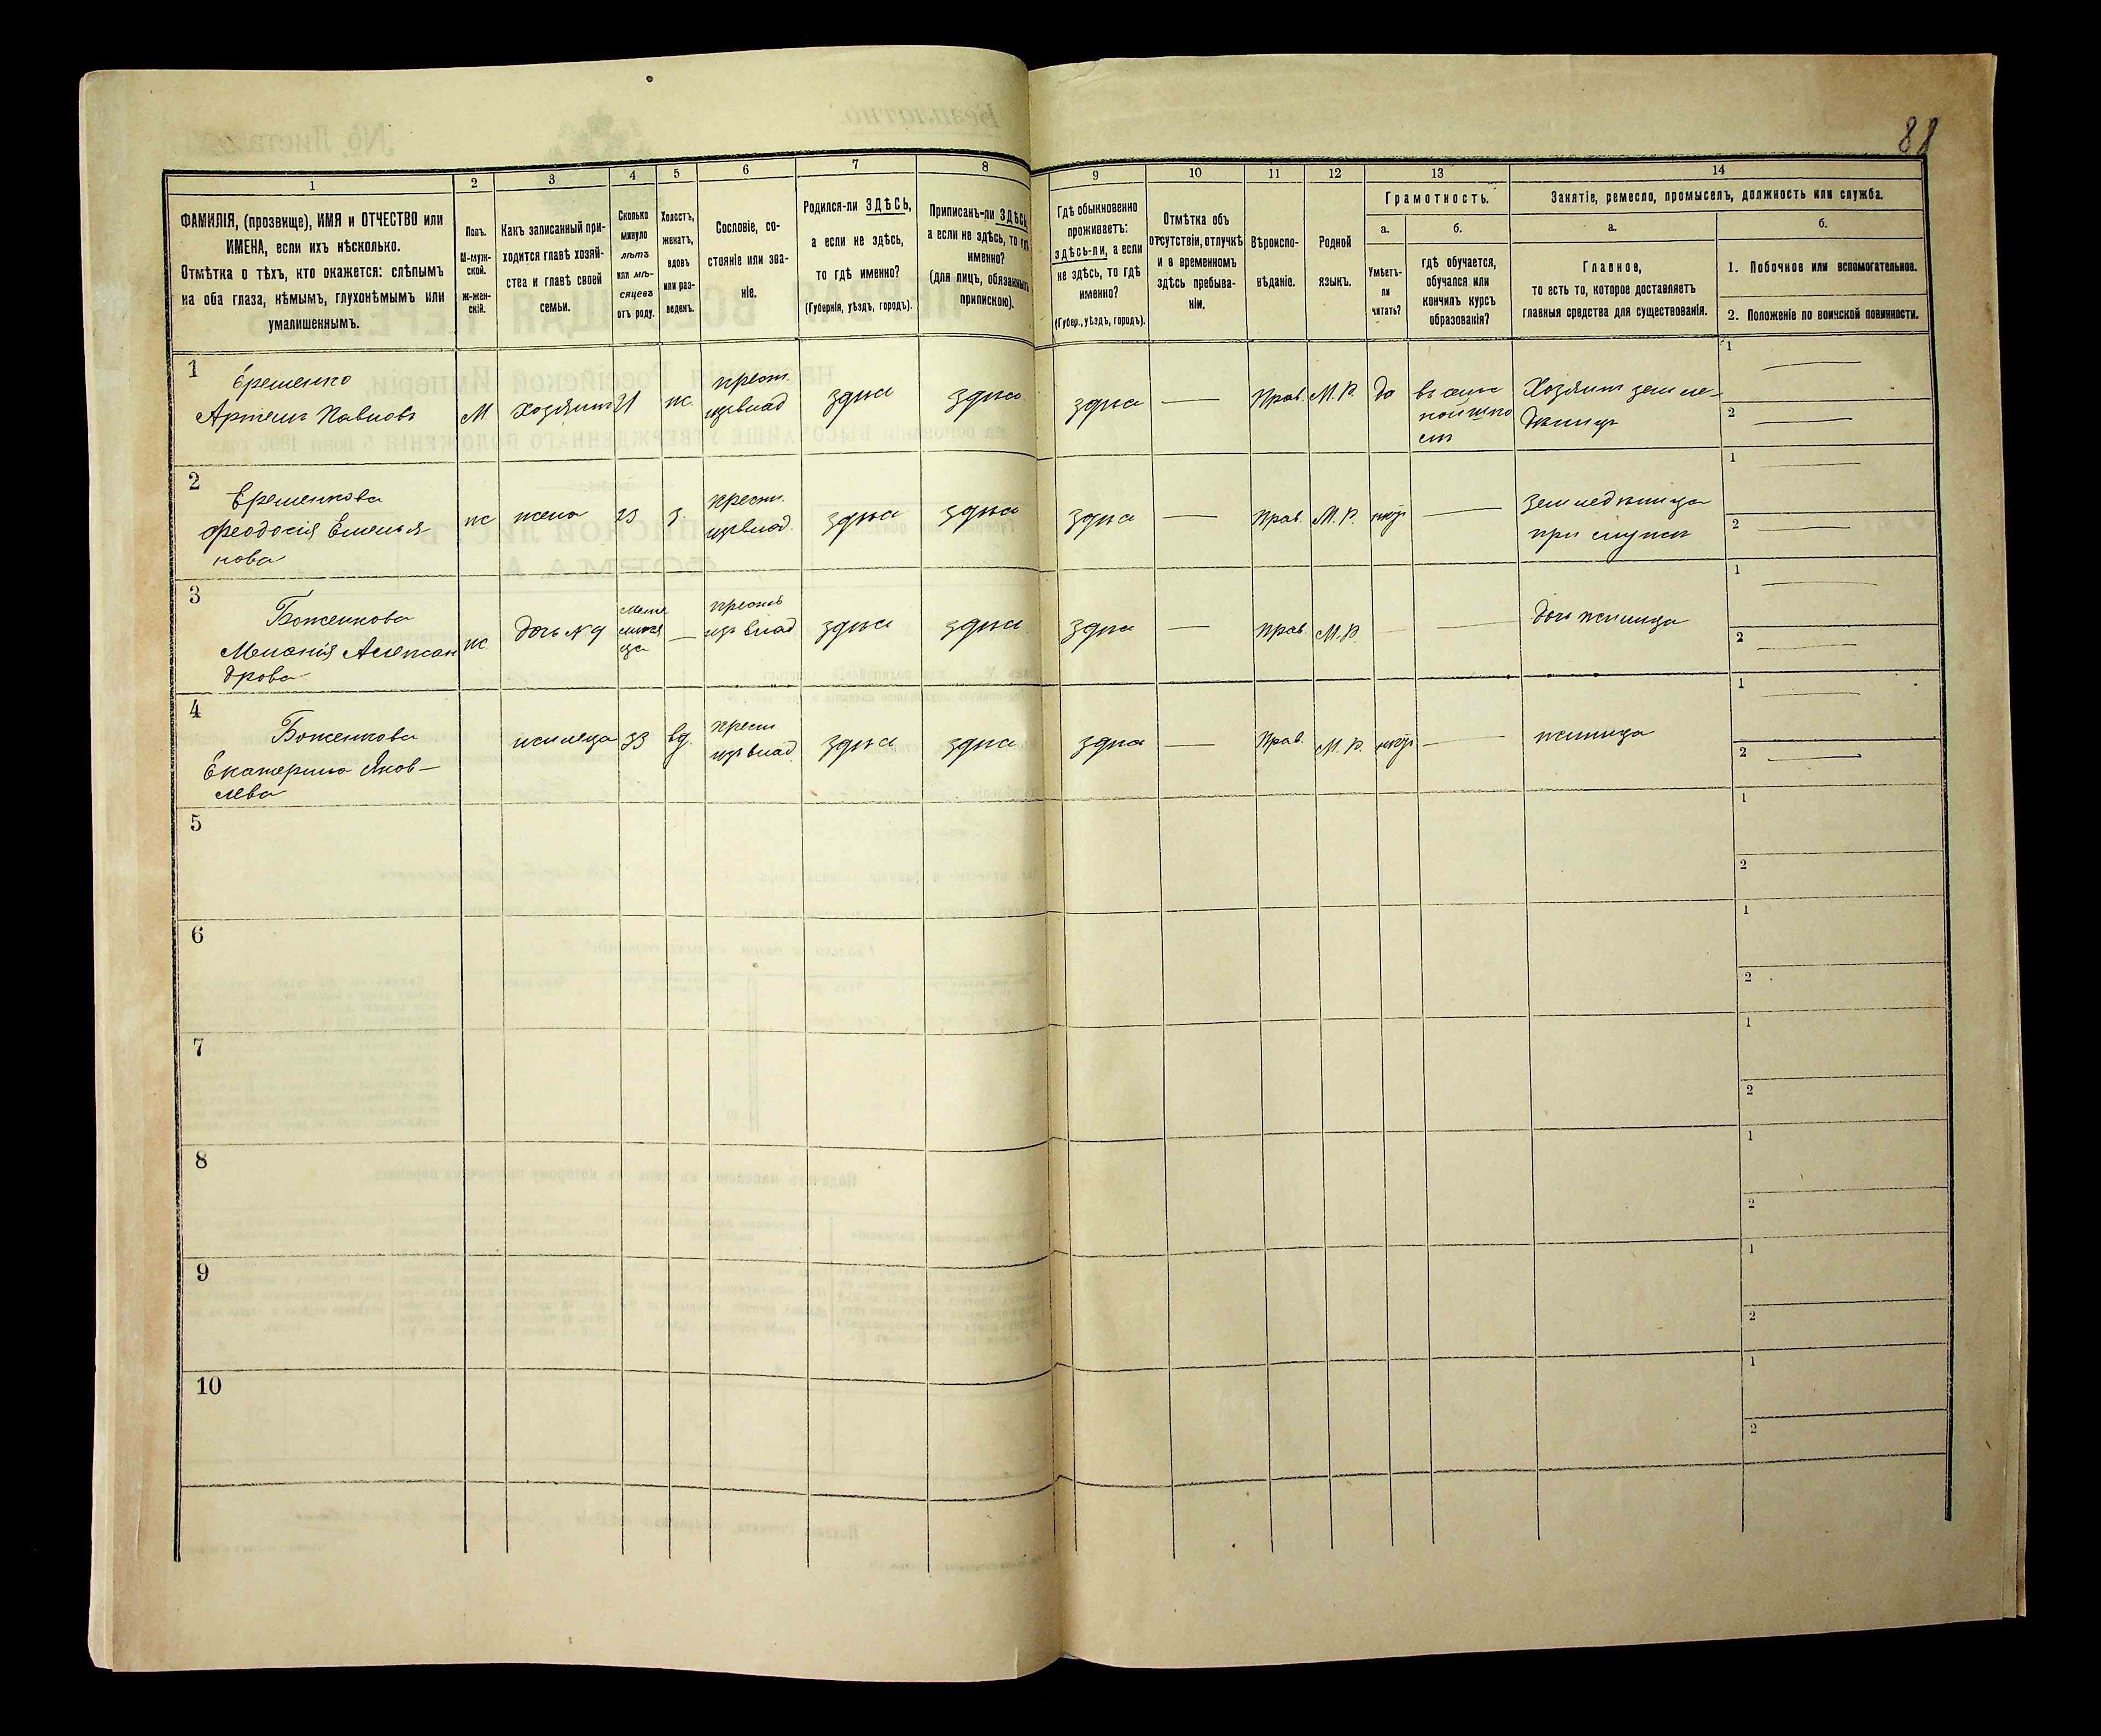 88
1
2
3
4
5
6
7
8
9
10
11
12
13
14
ФАМИЛІЯ, (прозвище), ИМЯ и ОТЧЕСТВО или
ИМЕНА, если ихъ нѣсколько.
Отмѣтка о тѣхъ, кто окажется: слѣпымъ
на оба глаза, нѣмымъ, глухонѣмымъ или
умалишеннымъ.
Полъ.
М-муж-
ской.
ж-жен-
скій.
Какъ записанный при-
ходится главѣ хозяй-
ства и главѣ своей
семьи.
Сколько
минуло
лѣтъ
или мѣ-
сяцевъ
отъ роду.
Холостъ,
женатъ,
вдовъ
или раз-
веденъ.
Сословіе, со-
стояніе или зва-
ніе.
Родился-ли ЗДѢСЬ,
а если не здѣсь,
то гдѣ именно?
(Губернія, уѣздъ, городъ).
Приписанъ-ли ЗДѢСЬ,
а если не здѣсь, то гдѣ
именно?
(для лицъ, обязанныхъ
припискою).
Гдѣ обыкновенно
проживаетъ:
здѣсь-ли, а если
не здѣсь, то гдѣ
именно?
(Губер., уѣздъ, городъ).
Отмѣтка объ
отсутствіи, отлучкѣ
и о временномъ
здѣсь пребыва-
ніи.
Вѣроиспо-
вѣданіе.
Родной
языкъ.
Грамотность.
а.
Умѣетъ-
ли
читать?
б.
гдѣ обучается,
обучался или
кончилъ курсъ
образованія?
Занятіе, ремесло, промыселъ, должность или служба.
а.
Главное,
то есть то, которое доставляетъ
главныя средства для существованія.
б.
1. Побочное или вспомогательное.
2. Положеніе по воинской повинности.
1
Ерешенко
Артемъ Павловъ
М
Хозяинъ
21
ж.
крест.
изъ влад
здѣсь
здѣсь
здѣсь
—
Прав.
М. Р.
да
въ сель
ской шко
лѣ
Хозяинъ земле-
дѣлецъ
1 —
2 —
2
Ерешенкова
Феодосія Емелья
нова
ж
жена
23
з.
крест.
изъ влад.
здѣсь
здѣсь
здѣсь
—
Прав.
М. Р.
—
Земледѣлица
при мужѣ
1 —
2 —
3
Боженкова
Меланія Алексан
дрова
ж
дочь №4
—
крестъ
изъ влад
здѣсь
здѣсь
здѣсь
—
Прав.
М. Р.
—
—
дочь жилицы
1 —
2 —
4
Боженкова
Екатерина Яков-
лева
жилица
33
вд.
крест
изъ влад.
здѣсь
здѣсь
здѣсь
—
Прав.
М. Р.
—
жилица
1 —
2 —
5
1
2
6
1
2
7
1
2
8
1
2
9
1
2
10
1
2